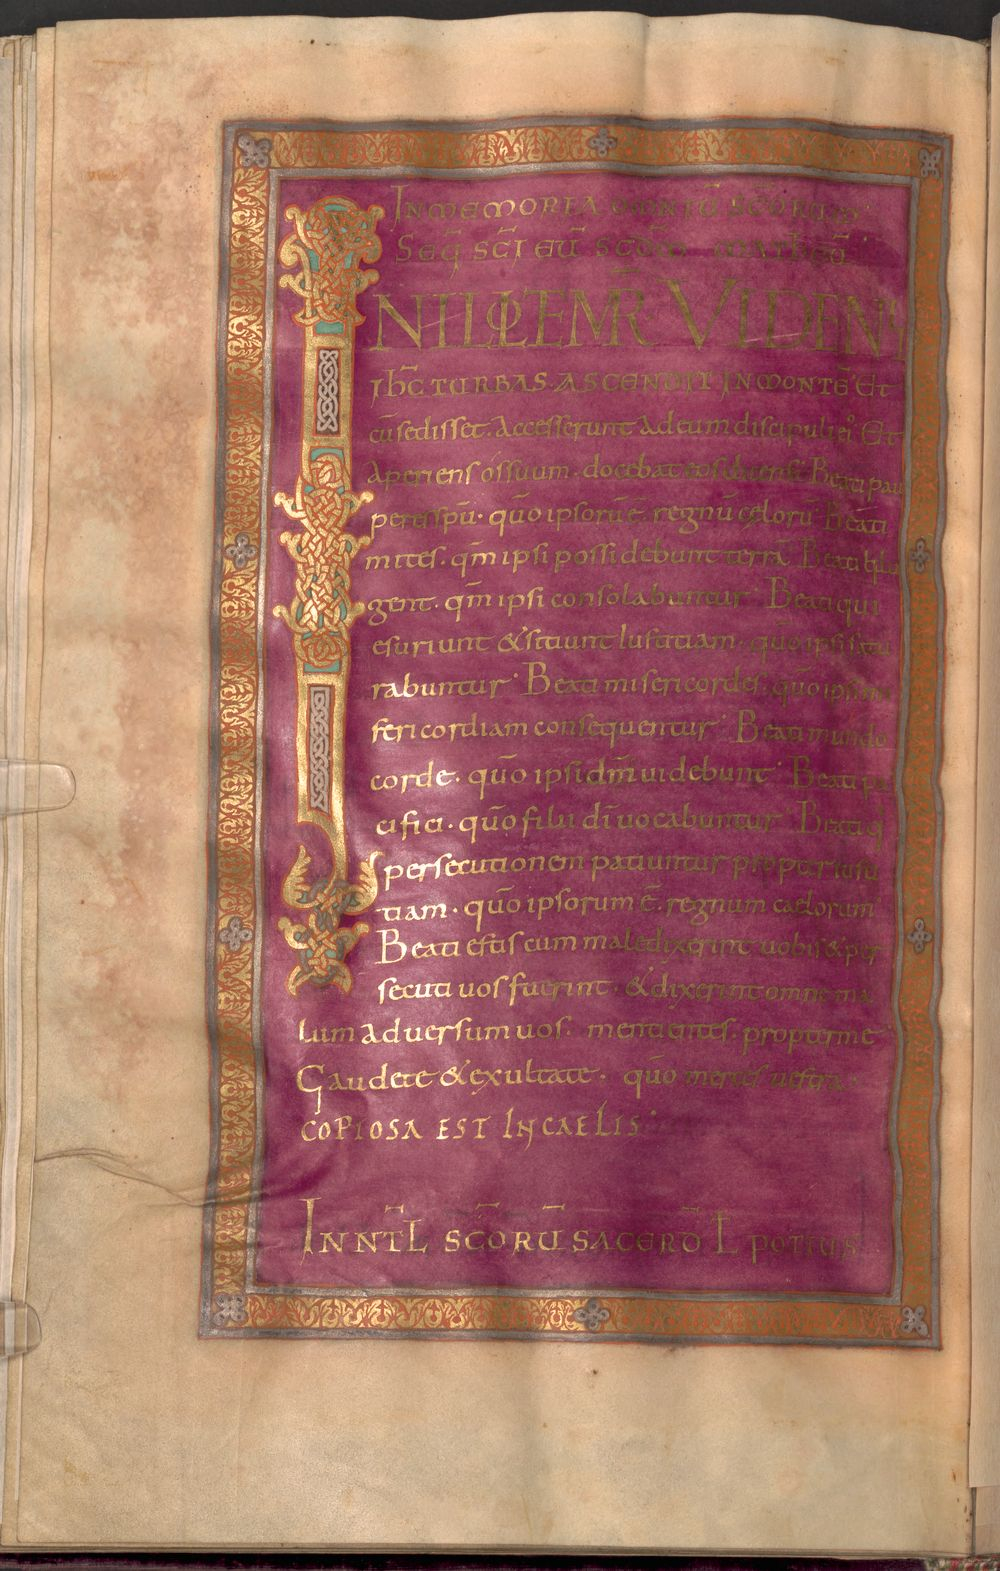 IN MEMORIA OMNIŪ SC̄ORUM
SEQ̄ SC̄I EŪ SCD̄M MATHEŪ
IN ILL TEMR̄ VIDENS
IHC̄ TURBAS. ASCENDIT IN MONTĒ Et
cū sedisset. Accesserunt ad eum discipuli ei' Et
Aperiens ós suum. docebat eos dicens Beati pau
peres sp̄u. qūo ipsorū ē. regnū cęlorū Beati
mites. qm̄ ipsi possidebunt terrā Beati qui lu
gent. qm̄ ipsi consolabuntur Beati qui
esuriunt & sitiunt Iustitiam. qūo ipsi satu
rabuntur Beati misericordes. qūo ipsi mi
sericordiam consequentur Beati mundo
corde. qūo ipsi dm̄ uidebunt Beati pa
cifici. qūo filii dī uocabuntur Beati q
persecutionem patiuntur propter iusti
tiam. qūo ipsorum ē. regnum caelorum
Beati estis cum maledixerint uobis & per
secuti uos fuerint. & dixerint omne ma
lum aduersum uos. mentientes. propter me
Gaudete & exultate. qūo merces uestra
COPIOSA EST IN CAELIS
IN NT̄L SC̄ORŪ SACERD̄ L̄ POTIUS